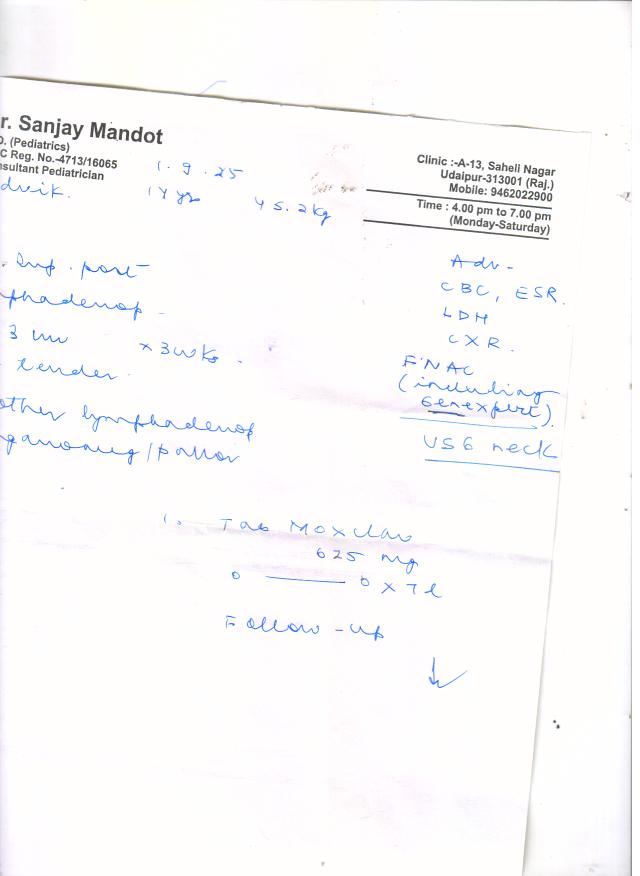 r. Sanjay Mandot
D. (Pediatrics)
C Reg. No.-4713/16065
nsultant Pediatrician
Clinic :-A-13, Saheli Nagar
Udaipur-313001 (Raj.)
Mobile: 9462022900
Time : 4.00 pm to 7.00 pm
(Monday-Saturday)
1.9.25
dvik. 14 yrs 45.2kg
. Sup. post
phadenop
3 x 3 wks.
tender.
other lymphadenop
/pallor
Adv -
CBC, ESR.
LDH
CXR.
FNAC
(including
Genexpert).
USG neck
1. Tab Moxclav
625 mg
0 — 0 x 7d
Follow-up